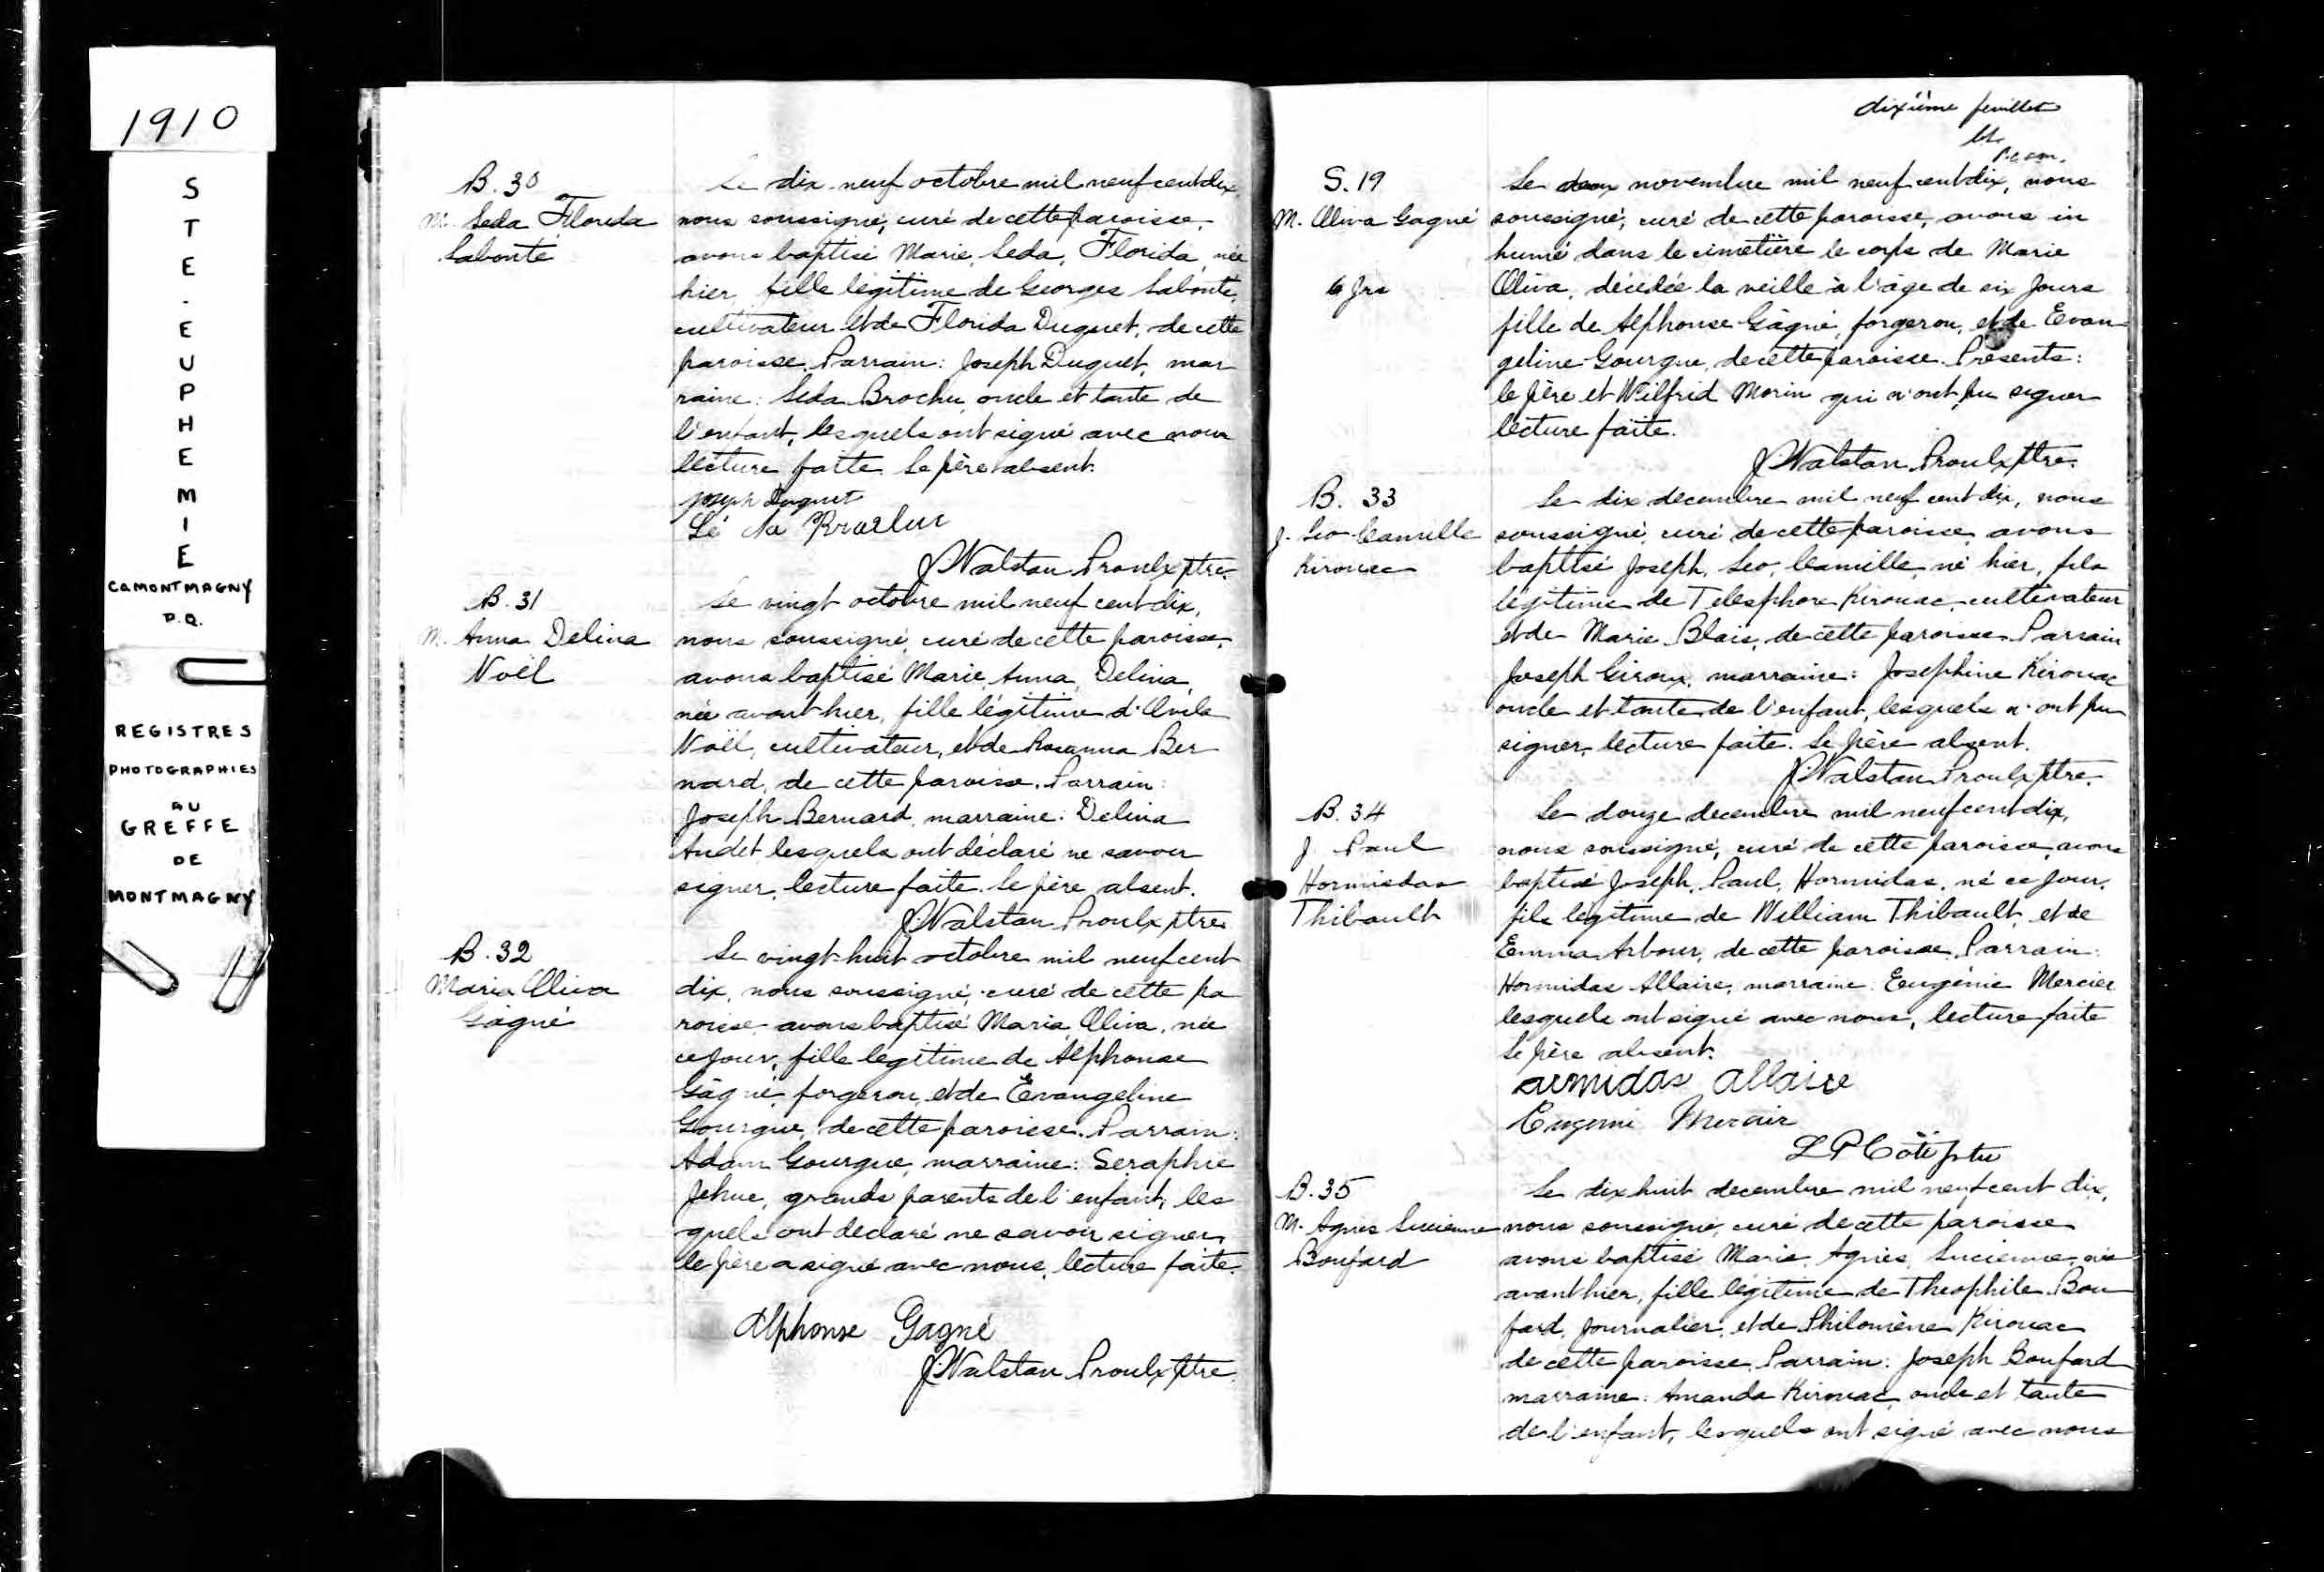 1910
STE. EUPHEMIE
Co MONTMAGNY
P.Q.
REGISTRES
PHOTOGRAPHIES
AU
GREFFE
DE
MONTMAGNY
B. 30
M. Leda Florida
Labonté
Le dix-neuf octobre mil neuf cent dix,
nous soussigné, curé de cette paroisse,
avons baptisé Marie, Leda, Florida, née
hier, fille légitime de Georges Labonté,
cultivateur et de Florida Duguet, de cette
paroisse. Parrain: Joseph Duguet, mar
raine: Leda Brochu, oncle et tante de
l'enfant, lesquels ont signé avec nous
lecture faite. Le père absent.
Joseph Duguet
J. Walstan Proulx ptre.
B. 31
M. Anna Delina
Noël
Le vingt octobre mil neuf cent dix,
nous soussigné, curé de cette paroisse,
avons baptisé Marie, Anna, Delina,
née avant hier, fille légitime d'Avila
Noël, cultivateur, et de Rosanna Ber
nard, de cette paroisse. Parrain:
Joseph Bernard, marraine: Delina
Audet lesquels ont déclaré ne savoir
signer, lecture faite. Le père absent.
J. Walstan Proulx ptre.
B. 32
Maria Oliva
Gagné
Le vingt-huit octobre mil neuf cent
dix, nous soussigné, curé de cette pa
roisse avons baptisé Maria Oliva, née
ce jour, fille legitime de Alphonse
Gâgné, forgeron, et de Evangeline
Gourgue, de cette paroisse. Parrain:
Adam Gourgue, marraine: Seraphie
Jehue, grands parents de l'enfant, les
quels ont declaré ne savoir signer
le père a signé avec nous, lecture faite.
Alphonse Gagné
J. Walstan Proulx ptre.
dixième feuillet
S. 19
M. Oliva Gagné
6 Jrs
Le deux novembre mil neuf cent dix, nous
soussigné, curé de cette paroisse, avons in
humé dans le cimetière le corps de Marie
Oliva, décédée la veille à l'âge de six jours
fille de Alphonse Gâgné, forgeron, et de Evan
geline Gourgue, de cette paroisse. Présents:
le père et Wilfrid Morin qui n'ont pu signer
lecture faite.
J. Walstan Proulx ptre.
B. 33
J. Leo Camille
Kirouac
Le dix decembre mil neuf cent dix, nous
soussigné, curé de cette paroisse, avons
baptisé Joseph, Leo, Camille, né hier, fils
légitime de Telesphore Kirouac, cultivateur
et de Marie Blais, de cette paroisse. Parrain
Joseph Giroux, marraine: Josephine Kirouac
oncle et tante de l'enfant, lesquels n'ont pu
signer, lecture faite. Le père absent.
J. Walstan Proulx ptre.
B. 34
J Paul
Hormisdas
Thibault
Le douze decembre mil neuf cent dix,
nous soussigné, curé de cette paroisse, avons
baptisé Joseph, Paul, Hormidas, né ce jour,
fils légitime de William Thibault, et de
Emma Arbour, de cette paroisse. Parrain:
Hormidas Allaire, marraine: Eugénie Mercier
lesquels ont signé avec nous, lecture faite
Le père absent.
armidas allaire
Eugenie Mercier
L P Côté ptre
B. 35
M. Agnes Lucienne
Boufard
Le dix huit decembre mil neuf cent dix,
nous soussigné, curé de cette paroisse
avons baptisé Marie, Agnès, Lucienne, née
avant hier, fille légitime de Theophile Bou
fard, journalier, et de Philomène Kirouac
de cette paroisse. Parrain: Joseph Boufard
marraine: Amanda Kirouac, oncle et tante
de l'enfant, lesquels ont signé avec nous